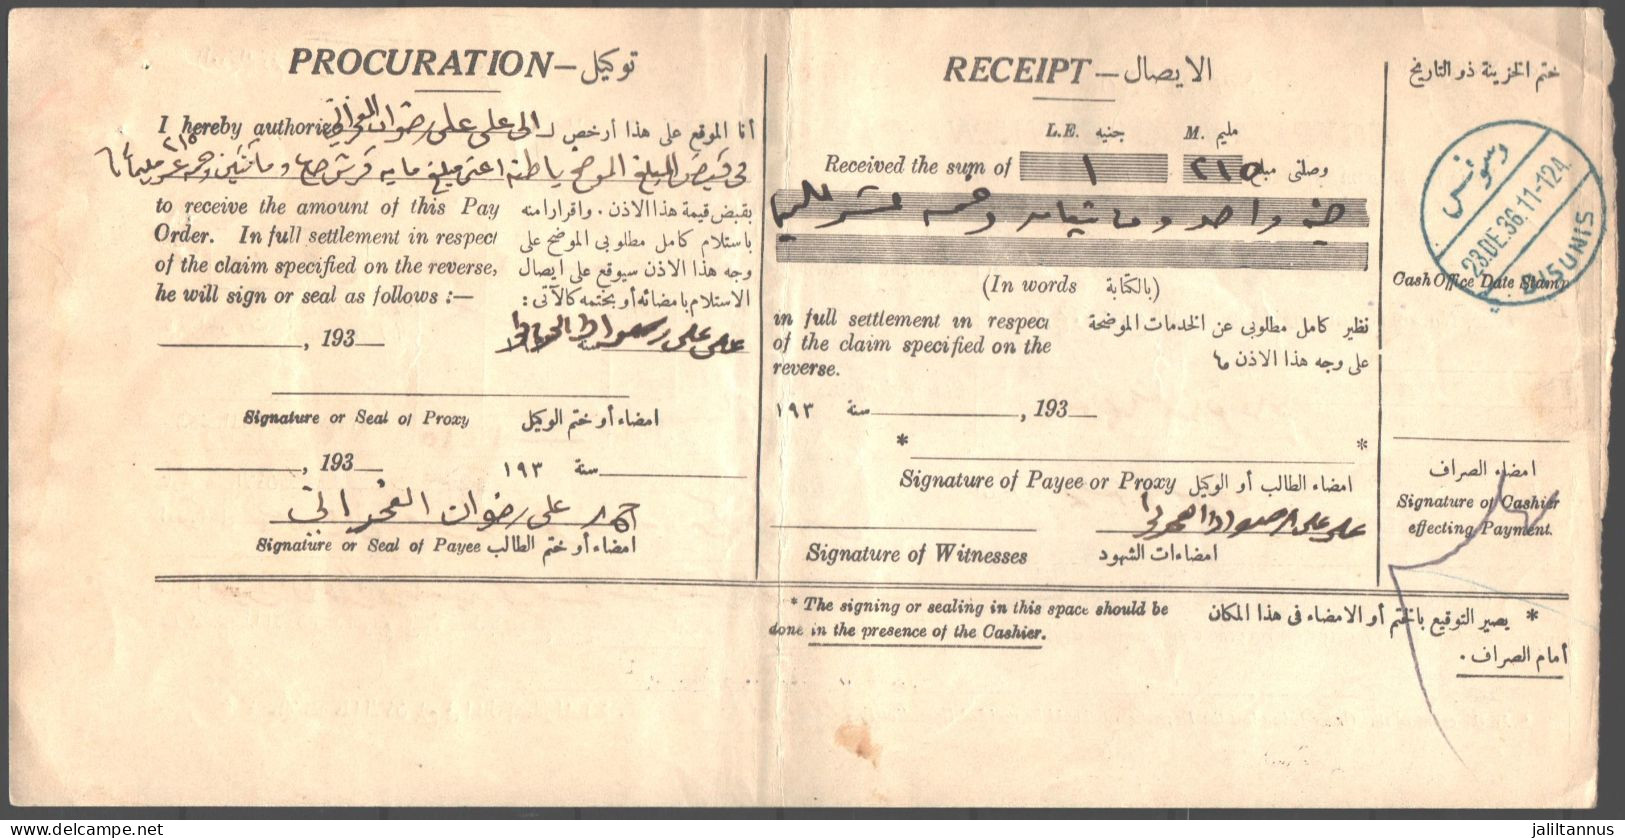 PROCURATION — توكيل
I hereby authorize
أنا الموقع على هذا أرخص لـ
الى على على رضوان
to receive the amount of this Pay
Order. In full settlement in respect
of the claim specified on the reverse,
he will sign or seal as follows :—
بقبض قيمة هذا الاذن . واقرارا منه
باستلام كامل مطلوبى الموضح على
وجه هذا الاذن سيوقع على ايصال
الاستلام بامضائه أو بختمه كالآتى :
, 193 سنة
على على رضوان
Signature or Seal of Proxy امضاء أو ختم الوكيل
, 193 سنة ١٩٣
على رضوان الفخرانى
Signature or Seal of Payee امضاء أو ختم الطالب
RECEIPT — الايصال
L.E. جنيه M. مليم
Received the sum of ١ ٢١٥ وصلنى مبلغ
واحد ومائتان وخمسة عشر مليما
(In words بالكتابة)
in full settlement in respect
of the claim specified on the
reverse.
نظير كامل مطلوبى عن الخدمات الموضحة
على وجه هذا الاذن
١٩٣ سنة , 193
* *
Signature of Payee or Proxy امضاء الطالب أو الوكيل
على على رضوان
Signature of Witnesses امضاءات الشهود
* The signing or sealing in this space should be
done in the presence of the Cashier.
* يصير التوقيع بالختم أو الامضاء فى هذا المكان
أمام الصراف .
ختم الخزينة ذو التاريخ
23.DE.36.11-12
BISUNIS
Cash Office Date Stamp
امضاء الصراف
Signature of Cashier
effecting Payment.
jaliltannus
delcampe.net